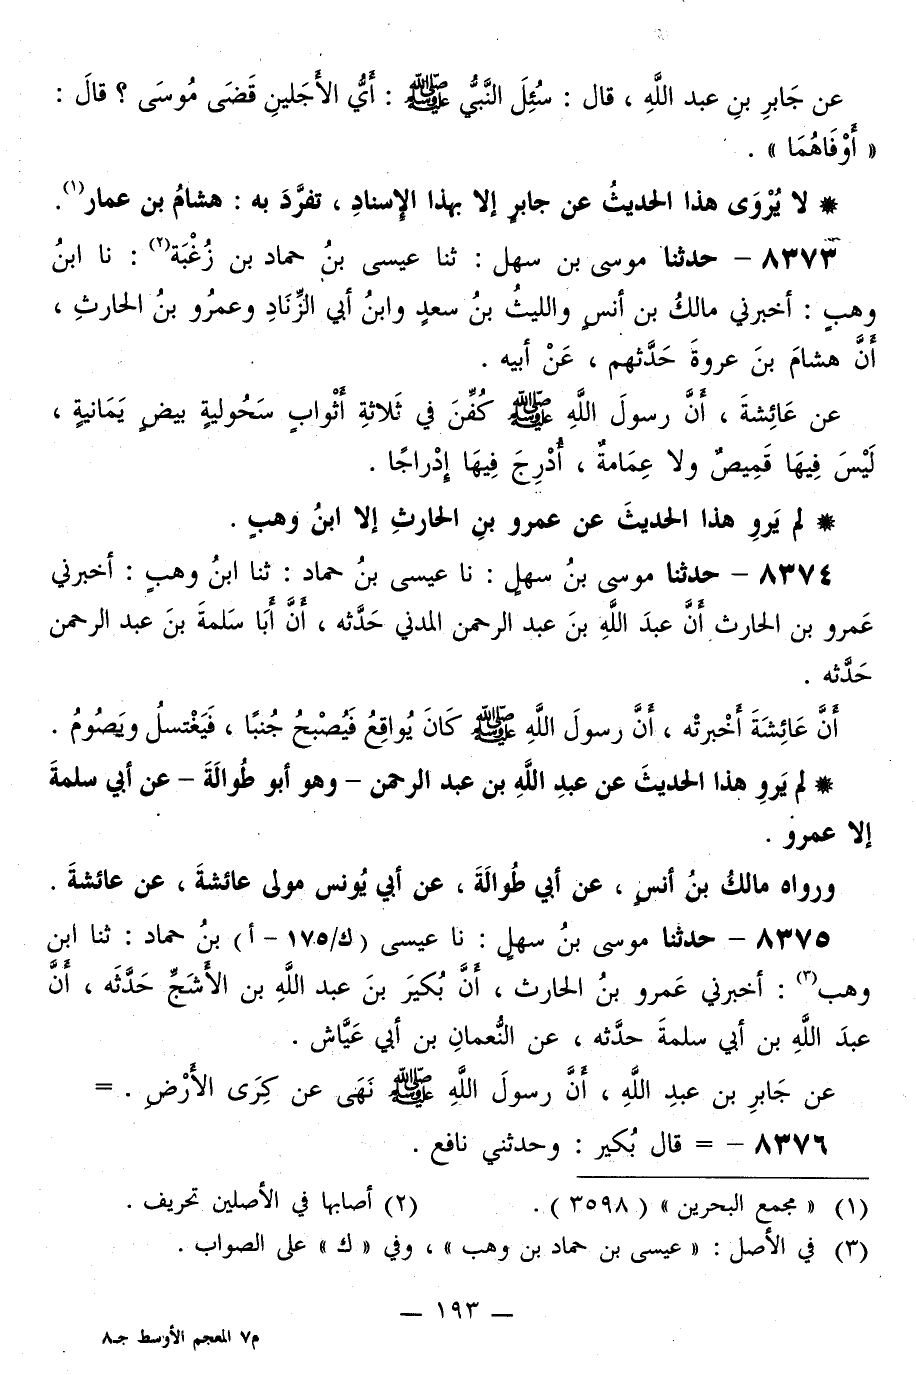 عن جَابرِ بنِ عبد اللَّهِ ، قال : سُئِلَ النَّبيُّ ﷺ : أَيُّ الأَجَلينِ قَضَى مُوسَى ؟ قالَ :
« أَوْفَاهُمَا » .
* لا يُرْوَى هذا الحديثُ عن جابرٍ إلا بهذا الإسنادِ ، تفرَّدَ به : هشامُ بن عمار(١).
٨٣٧٣ – حدثنا موسى بن سهل : ثنا عيسى بنُ حماد بن زُغْبَة(٢) : نا ابنُ
وهبٍ : أخبرني مالكُ بن أنسٍ والليثُ بنُ سعدٍ وابنُ أبي الزِّنَادِ وعمرُو بنُ الحارثِ ،
أَنَّ هشامَ بنَ عروةَ حَدَّثهم ، عَنْ أبيه .
عن عَائِشةَ ، أَنَّ رسولَ اللَّهِ ﷺ كُفِّنَ في ثَلاثةِ أَثْوابٍ سَحُوليةٍ بيضٍ يَمَانيةٍ ،
لَيْسَ فِيهَا قَمِيصٌ ولا عِمَامةٌ ، أُدْرِجَ فِيهَا إِدْراجًا .
* لم يَروِ هذا الحديثَ عن عمرو بنِ الحارثِ إلا ابنُ وهبٍ .
٨٣٧٤ – حدثنا موسى بنُ سهلٍ : نا عيسى بنُ حماد : ثنا ابنُ وهبٍ : أخبرني
عَمرو بن الحارث أَنَّ عبدَ اللَّهِ بنَ عبد الرحمن المدني حَدَّثه ، أَنَّ أَبَا سَلمةَ بنَ عبد الرحمن
حَدَّثه .
أَنَّ عَائِشَةَ أَخْبرتْه ، أَنَّ رسولَ اللَّهِ ﷺ كَانَ يُواقِعُ فَيُصْبحُ جُنبًا ، فَيَغْتسلُ ويَصُومُ .
* لم يَروِ هذا الحديثَ عن عبدِ اللَّهِ بن عبد الرحمن – وهو أبو طُوالَةَ – عن أبي سلمةَ
إلا عمرو .
ورواه مالكُ بنُ أنسٍ ، عن أبي طُوالَةَ ، عن أبي يُونس مولى عائشةَ ، عن عائشةَ .
٨٣٧٥ – حدثنا موسى بنُ سهلٍ : نا عيسى (ك/١٧٥ – أ) بنُ حماد : ثنا ابن
وهب(٣) : أخبرني عَمرو بنُ الحارث ، أَنَّ بُكيرَ بنَ عبد اللَّهِ بن الأَشَجِّ حَدَّثَه ، أَنَّ
عبدَ اللَّهِ بن أبي سلمةَ حدَّثه ، عن النُّعمانِ بن أبي عَيَّاش .
عن جَابرِ بن عبدِ اللَّهِ ، أَنَّ رسولَ اللَّهِ ﷺ نَهَى عن كِرَى الأَرْضِ . =
٨٣٧٦ – = قال بُكير : وحدثني نافع .
(١) « مجمع البحرين » ( ٣٥٩٨ ) . (٢) أصابها في الأصلين تحريف .
(٣) في الأصل : « عيسى بن حماد بن وهب » ، وفي « ك » على الصواب .
— ١٩٣ —
م٧ المعجم الأوسط جـ٨